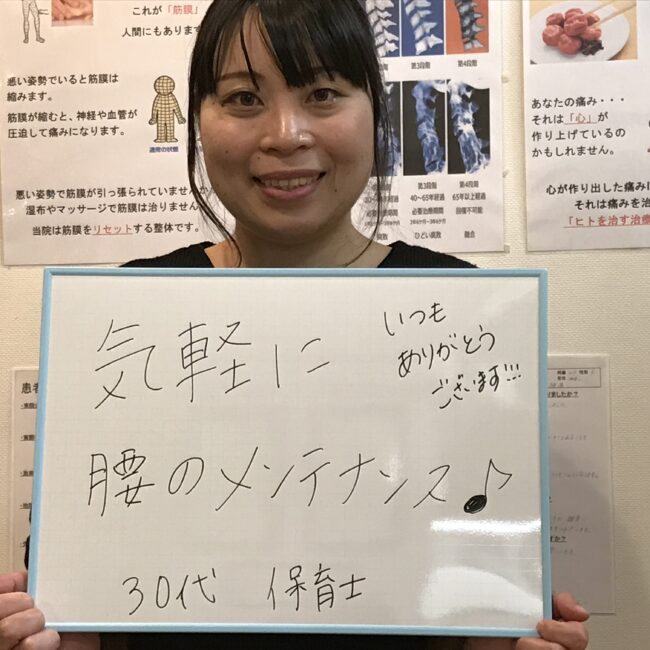 これが「筋膜」
人間にもあります
悪い姿勢でいると筋膜は
縮みます。
筋膜が縮むと、神経や血管が
圧迫して痛みになります。
通常の状態
悪い姿勢で筋膜が引っ張られていませんか
湿布やマッサージで筋膜は治りません
当院は筋膜をリセットする整体です。
第3段階
第4段階
第3段階
第4段階
40〜65年経過
65年以上経過
必要治療期間
回復不可能
ひどい腐敗
融合
あなたの痛み・・・
それは「心」が
作り上げているの
かもしれません。
心が作り出した痛みに
それは痛みを治
「ヒトを治す治療
気軽に
いつも
ありがとう
ございます!!!
腰のメンテナンス♪
30代 保育士